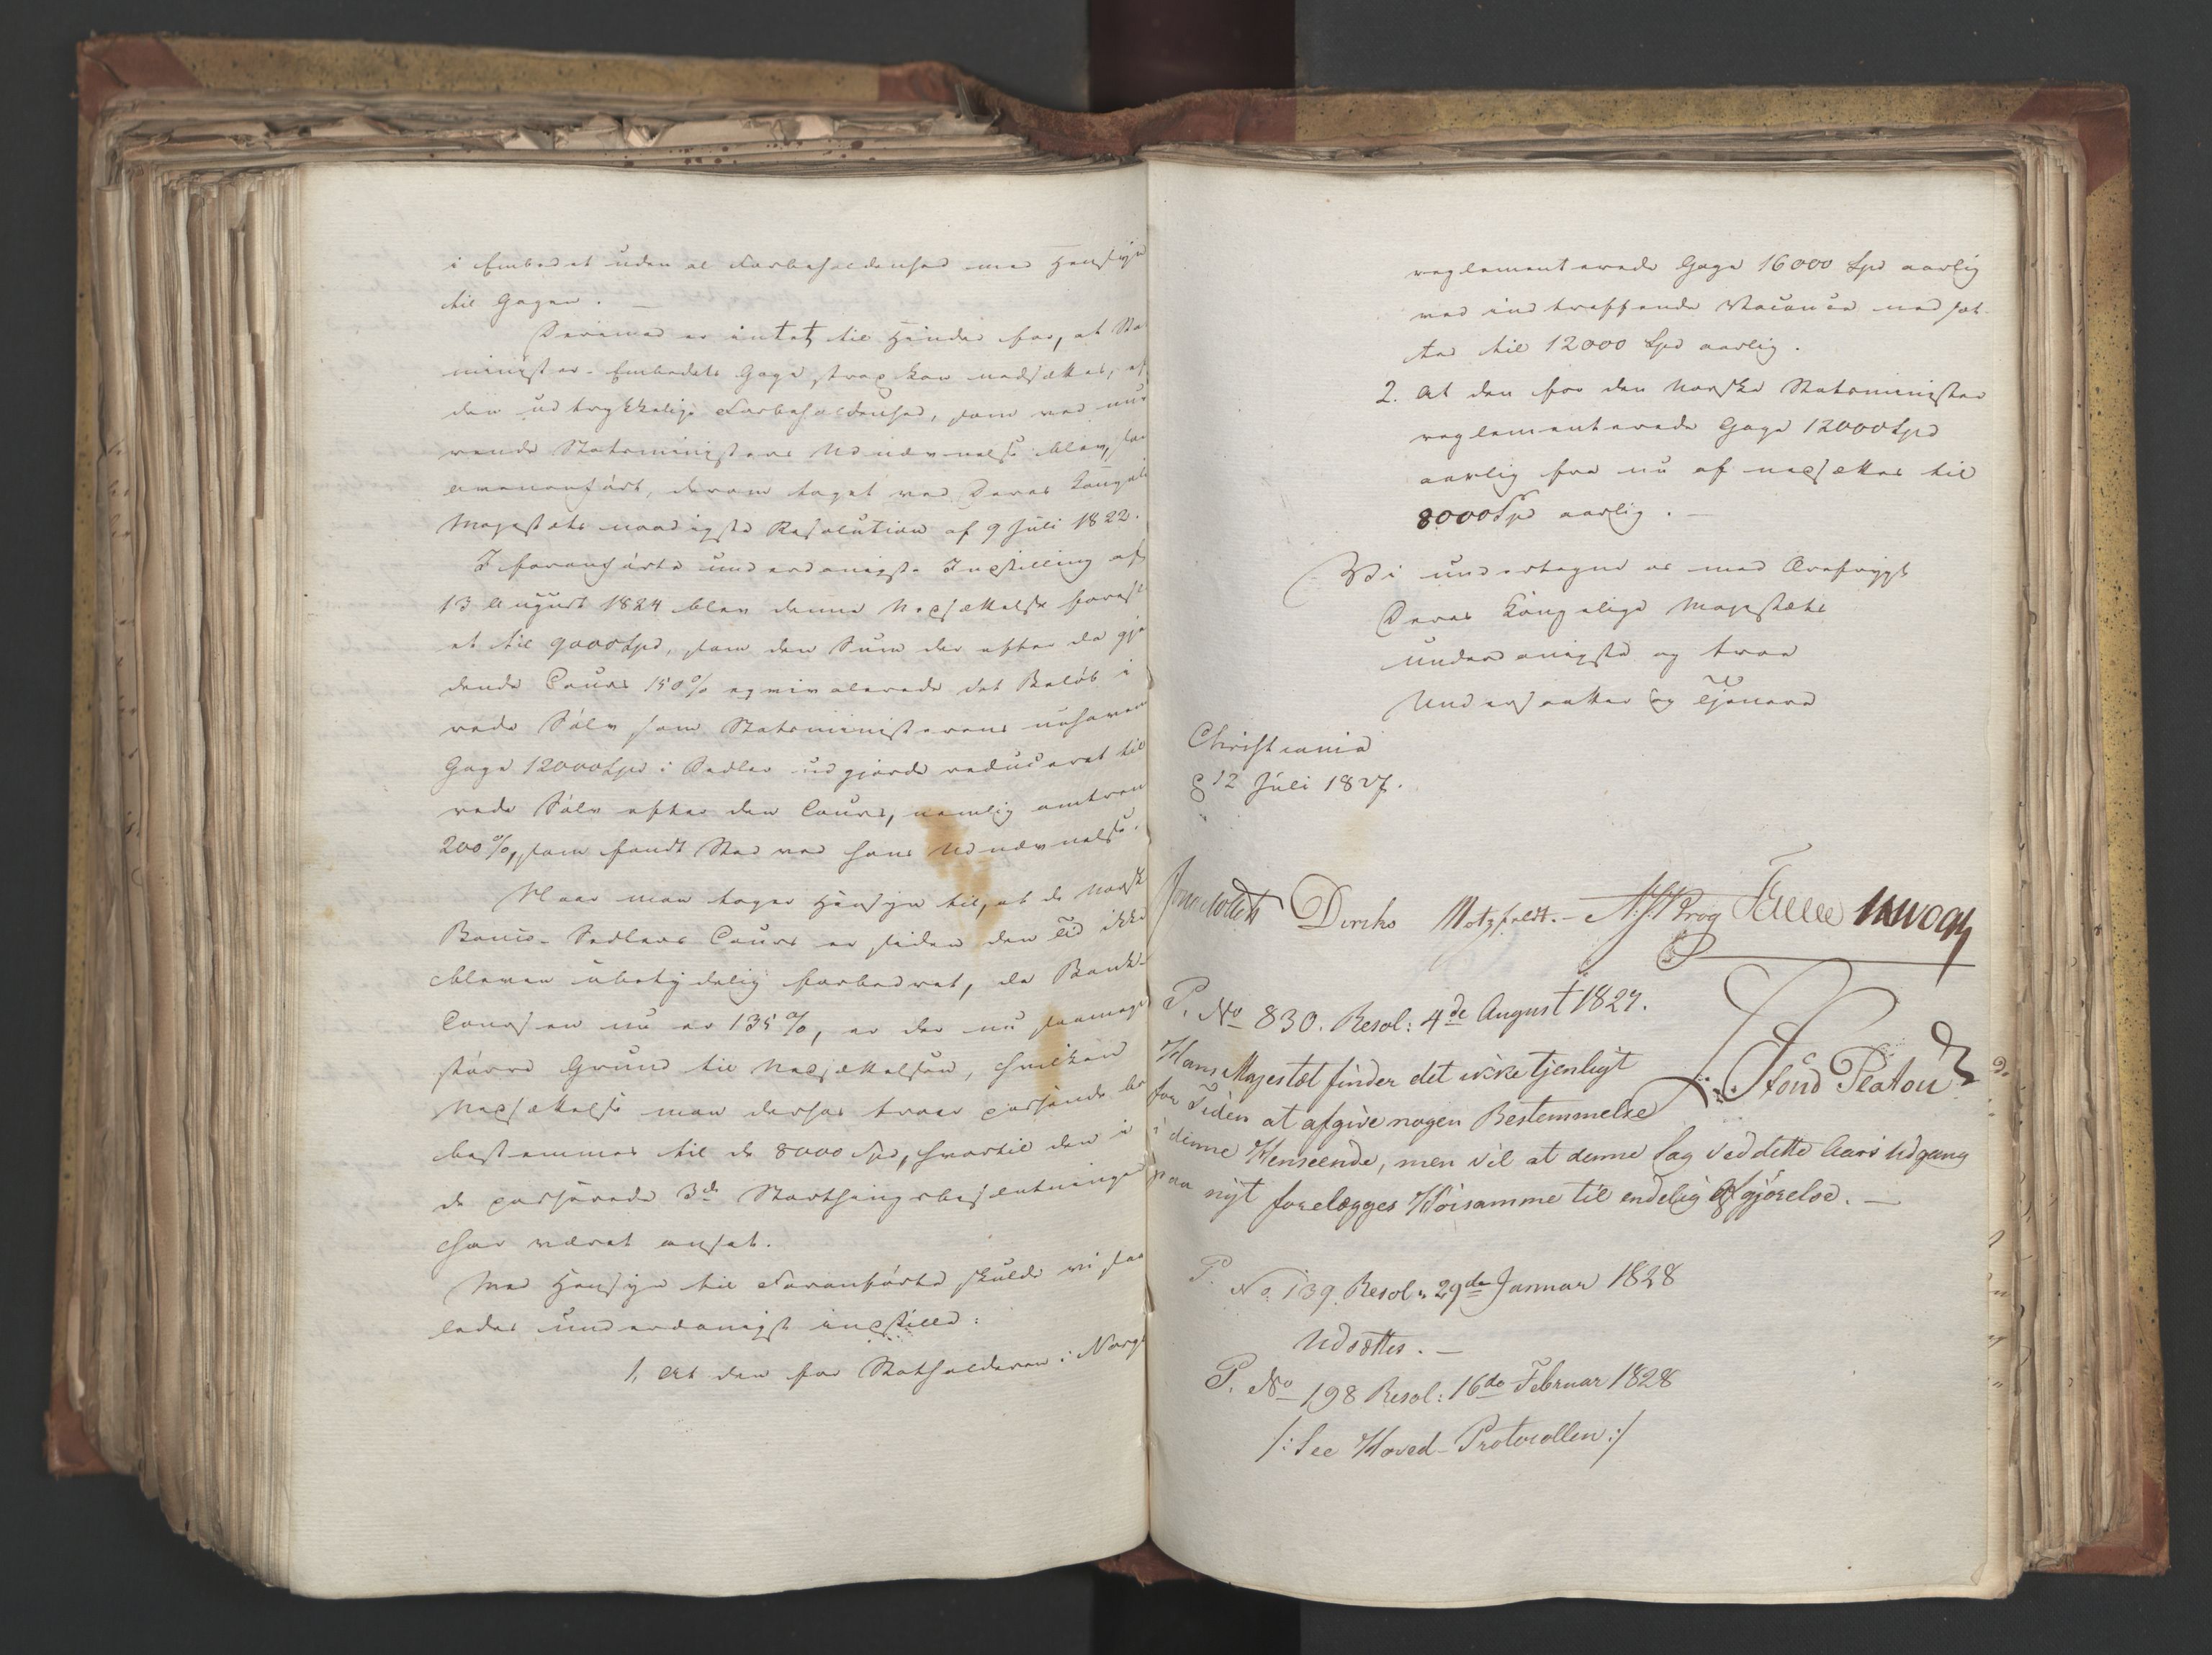 i Embedet uden al Forbeholdenhed med Hensyn
til Gagen. —
Derimod er intet til Hinder for, at Sta
minister-Embedets Gage strax kan nedsættes, ef
den udtrykkelige Forbeholdenhed, som ved nu
rende Statsministers Udnævnelse blev, saa
ovenanført, derom taget ved Deres Kongeli
Majestæts naadigste Resolution af 9 Juli 1822.
I foranførte underdanigste Indstilling af
13 August 1824 blev denne Nedsættelse foresl
et til 9000 Spd, som den Sum der efter da gjæ
dende Cours 150 % eqvivalerede det Beløb i
rede Sølv som Statsministerens nuhaven
Gage 12000 Spd i Sedler udgjorde reduceret til
rede Sølv efter den Cours, nemlig omtren
200 %, som fandt Sted ved hans Udnævnelse.
Naar man tager Hensyn til, at de norsk
Banco-Sedlers Cours er siden den Tid ikke
bleven ubetydelig forbedret, da Bank-
Coursen nu er 135 %, er der nu saameget
større Grund til Nedsættelsen, hvilken
Nedsættelse man derfor troer passende bør
bestemmes til de 8000 Spd, hvortil den i
de passerede 3de Storthingsbeslutninger
har været ansat.
Med Hensyn til Foranførte skulde vi saa
ledes underdanigst indstille:
1. At den for Statholderen i Norge
reglementerede Gage 16000 Spd aarlig
ved indtreffende Vacance nedsæt-
tes til 12000 Spd aarlig.
2. At den for den norske Statsminister
reglementerede Gage 12000 Spd
aarlig fra nu af nedsættes til
8000 Spd aarlig. —
Vi undertegne os med Ærefrygt
Deres Kongelige Majestæts
underdanigste og troe
Undersaatter og Tjenere
Christiania
d 12 Juli 1827.
Jonas Collett Diriks Motzfeldt. — Krog Fasting
P. No 830. Resol: 4de August 1827.
Sibbern Platou
Hans Majestæt finder det ikke tjenligt
for Tiden at afgive nogen Bestemmelse
i denne Henseende, men vil at denne Sag ved dette Aars Udgang
paa nyt forelægges Høisamme til endelig Afgjørelse. —
P. No. 139. Resol: 29de Januar 1828
Udsættes. —
P. No 198 Resol: 16de Februar 1828
/: See Hoved-Protocollen :/